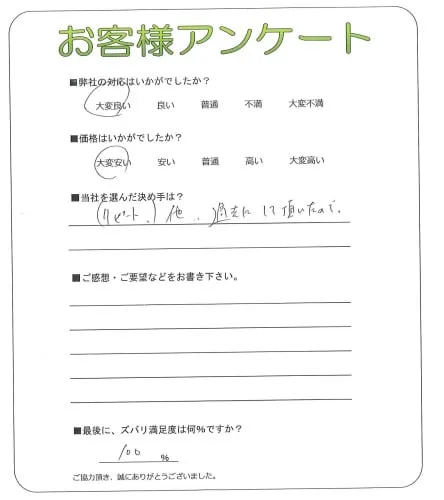 お客様アンケート
■弊社の対応はいかがでしたか？
大変良い 良い 普通 不満 大変不満
■価格はいかがでしたか？
大変安い 安い 普通 高い 大変高い
■当社を選んだ決め手は？
(リピート、) 他 にして頂いたので、
■ご感想・ご要望などをお書き下さい。
■最後に、ズバリ満足度は何%ですか？
100 %
ご協力頂き、誠にありがとうございました。